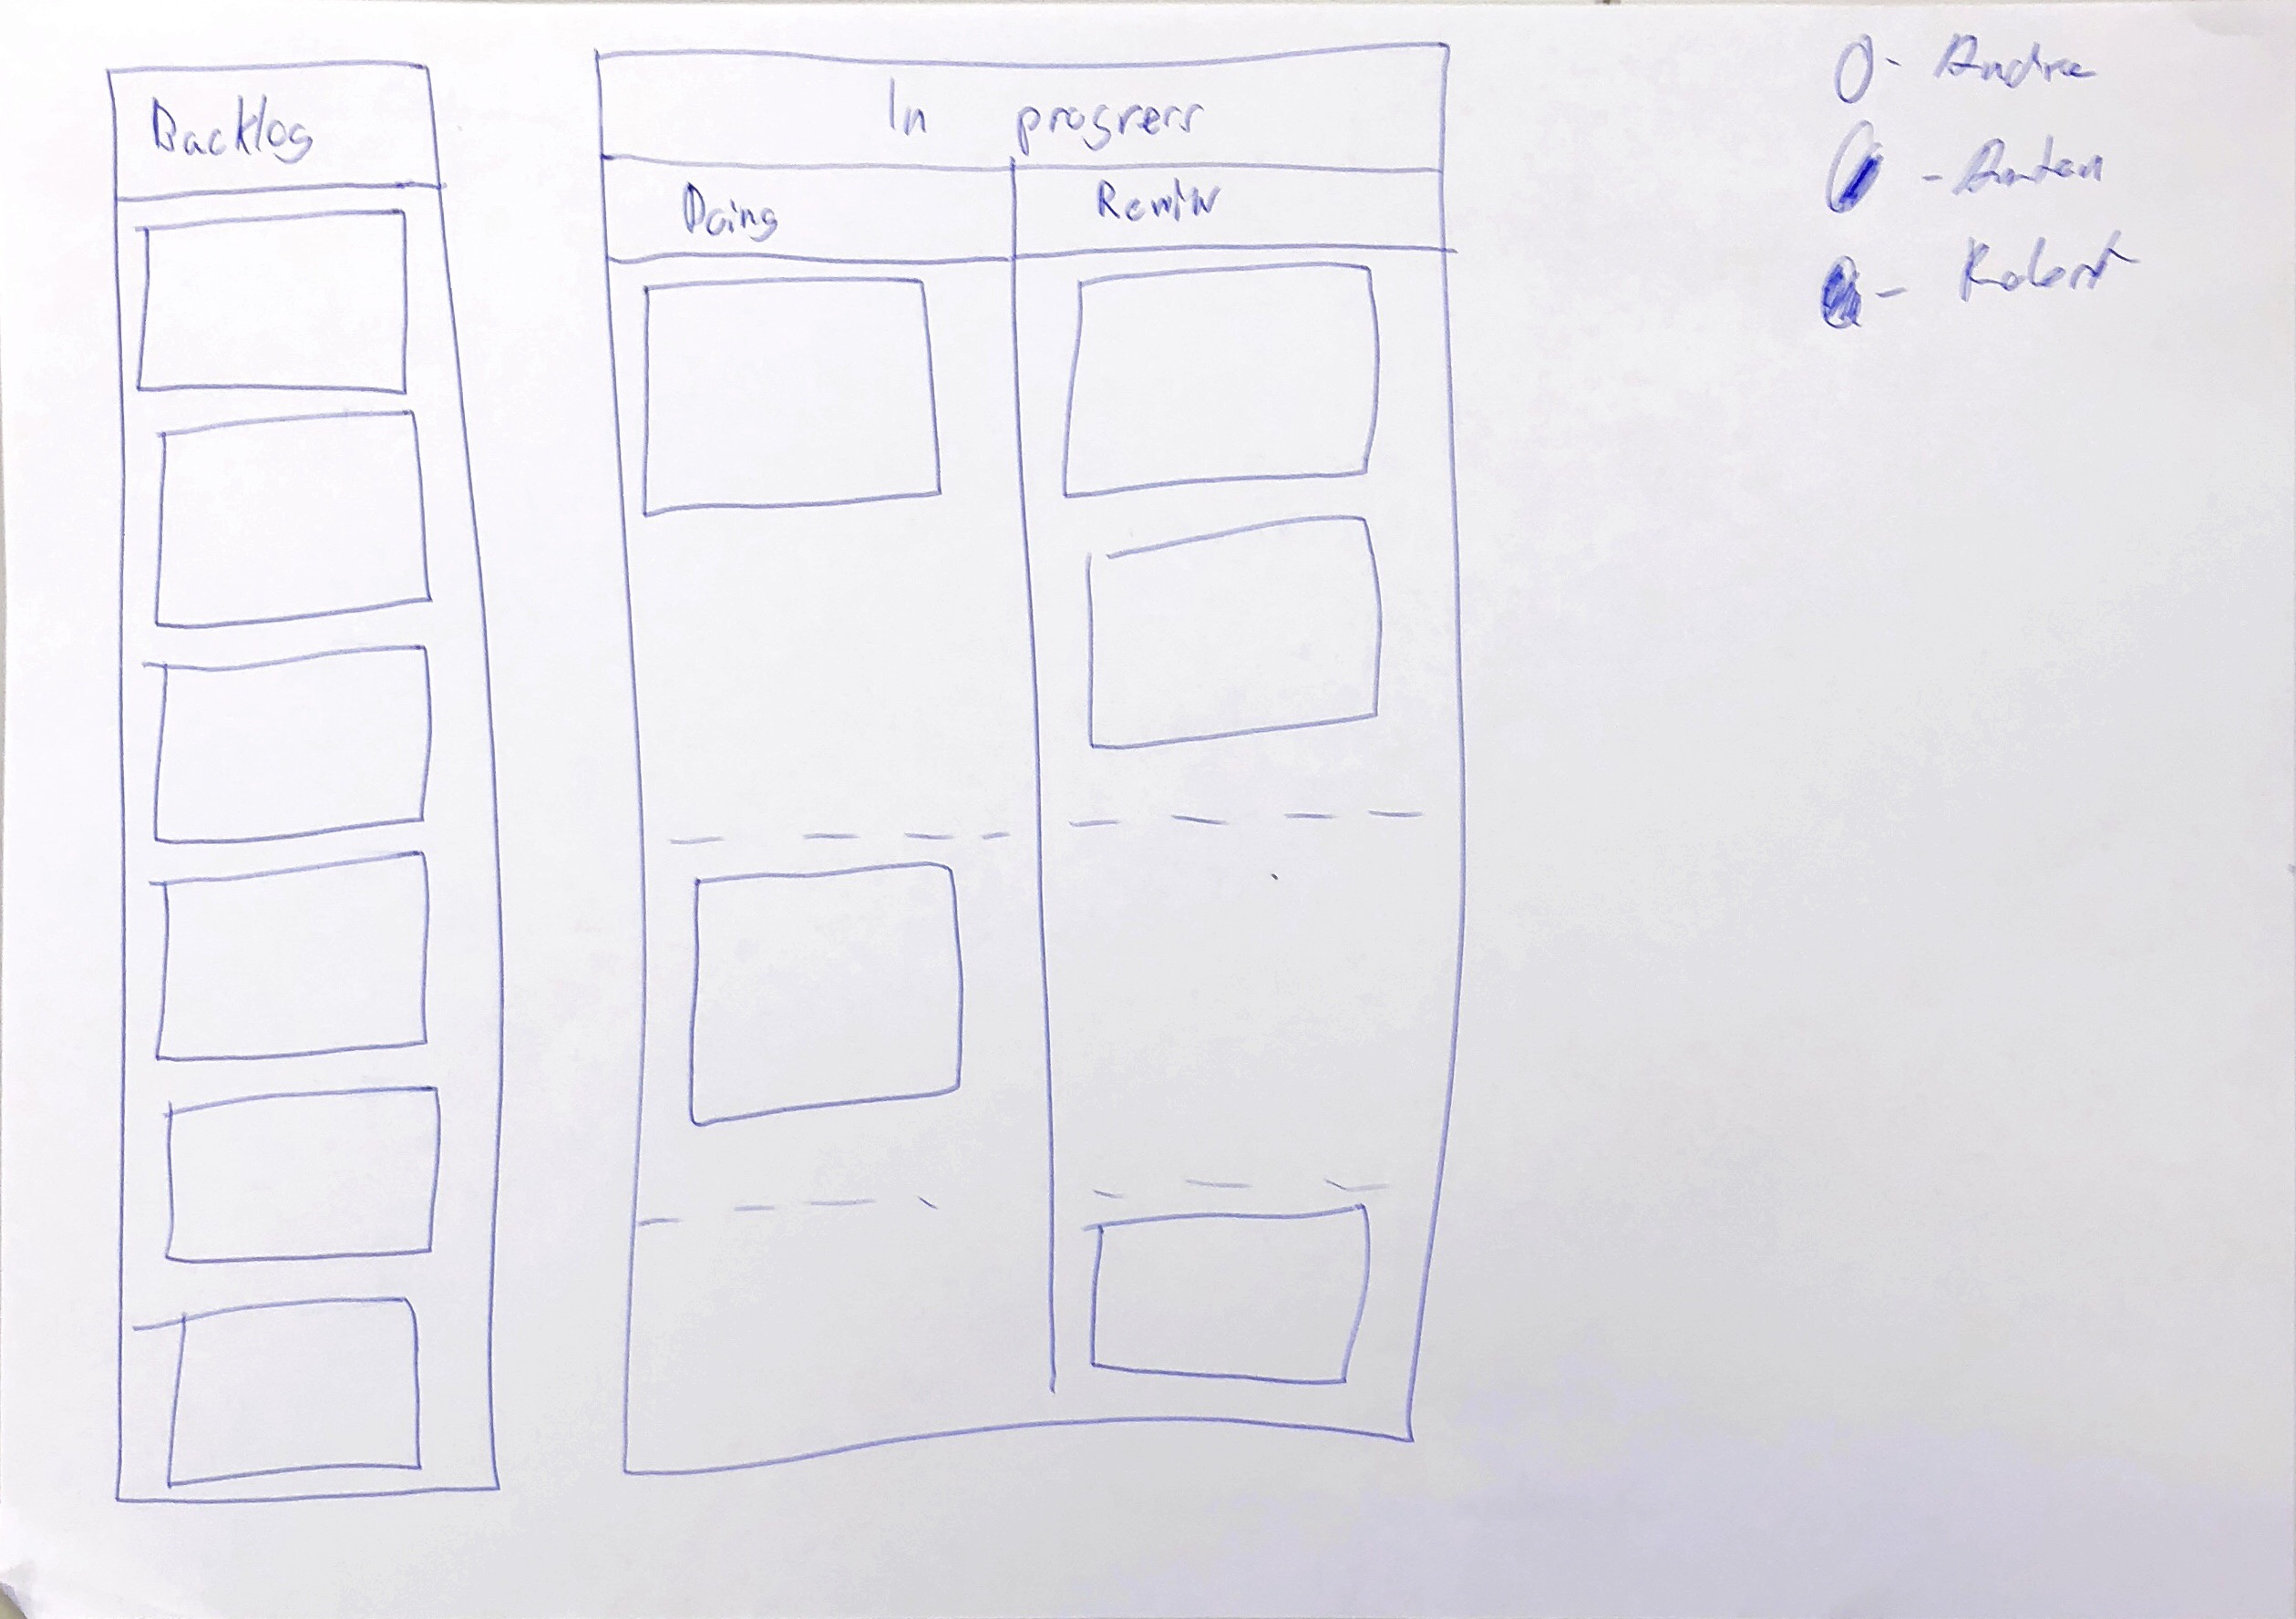 Backlog
In progress
Doing
Review
O - Andre
- Anton
- Robert